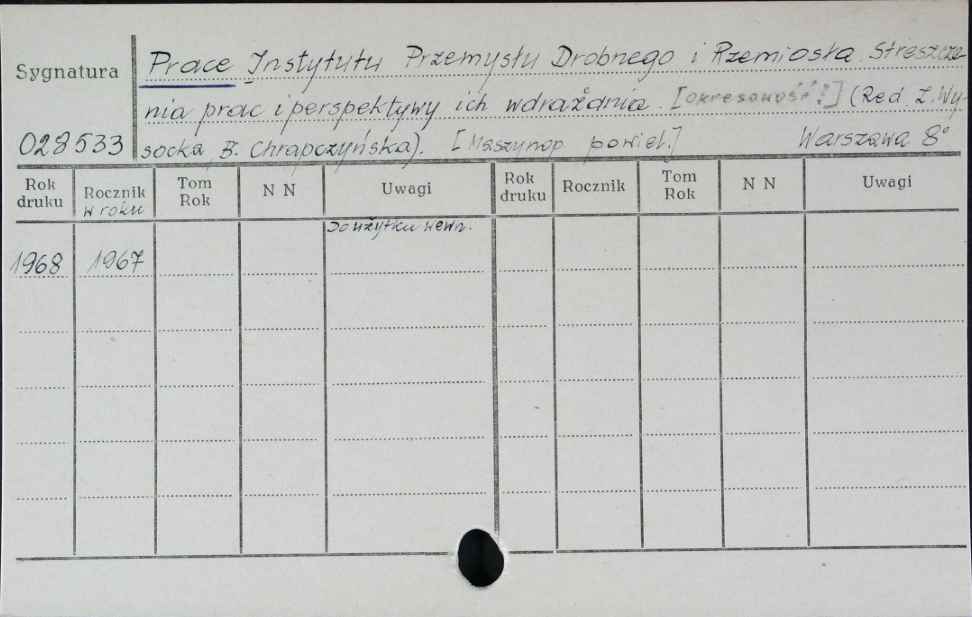 Prace Instytutu Przemysłu Drobnego i Rzemiosła. Streszcze-
Sygnatura
nia prac i perspektywy ich wdrażania. [okresowość?] (Red. Z. Wy-
028533 socka, B. Chrapczyńska). [Maszynop. powiel.] Warszawa 8°
Rok druku Rocznik w roku Tom Rok N N Uwagi Rok druku Rocznik Tom Rok N N Uwagi
Do użytku wewn.
1968 1967